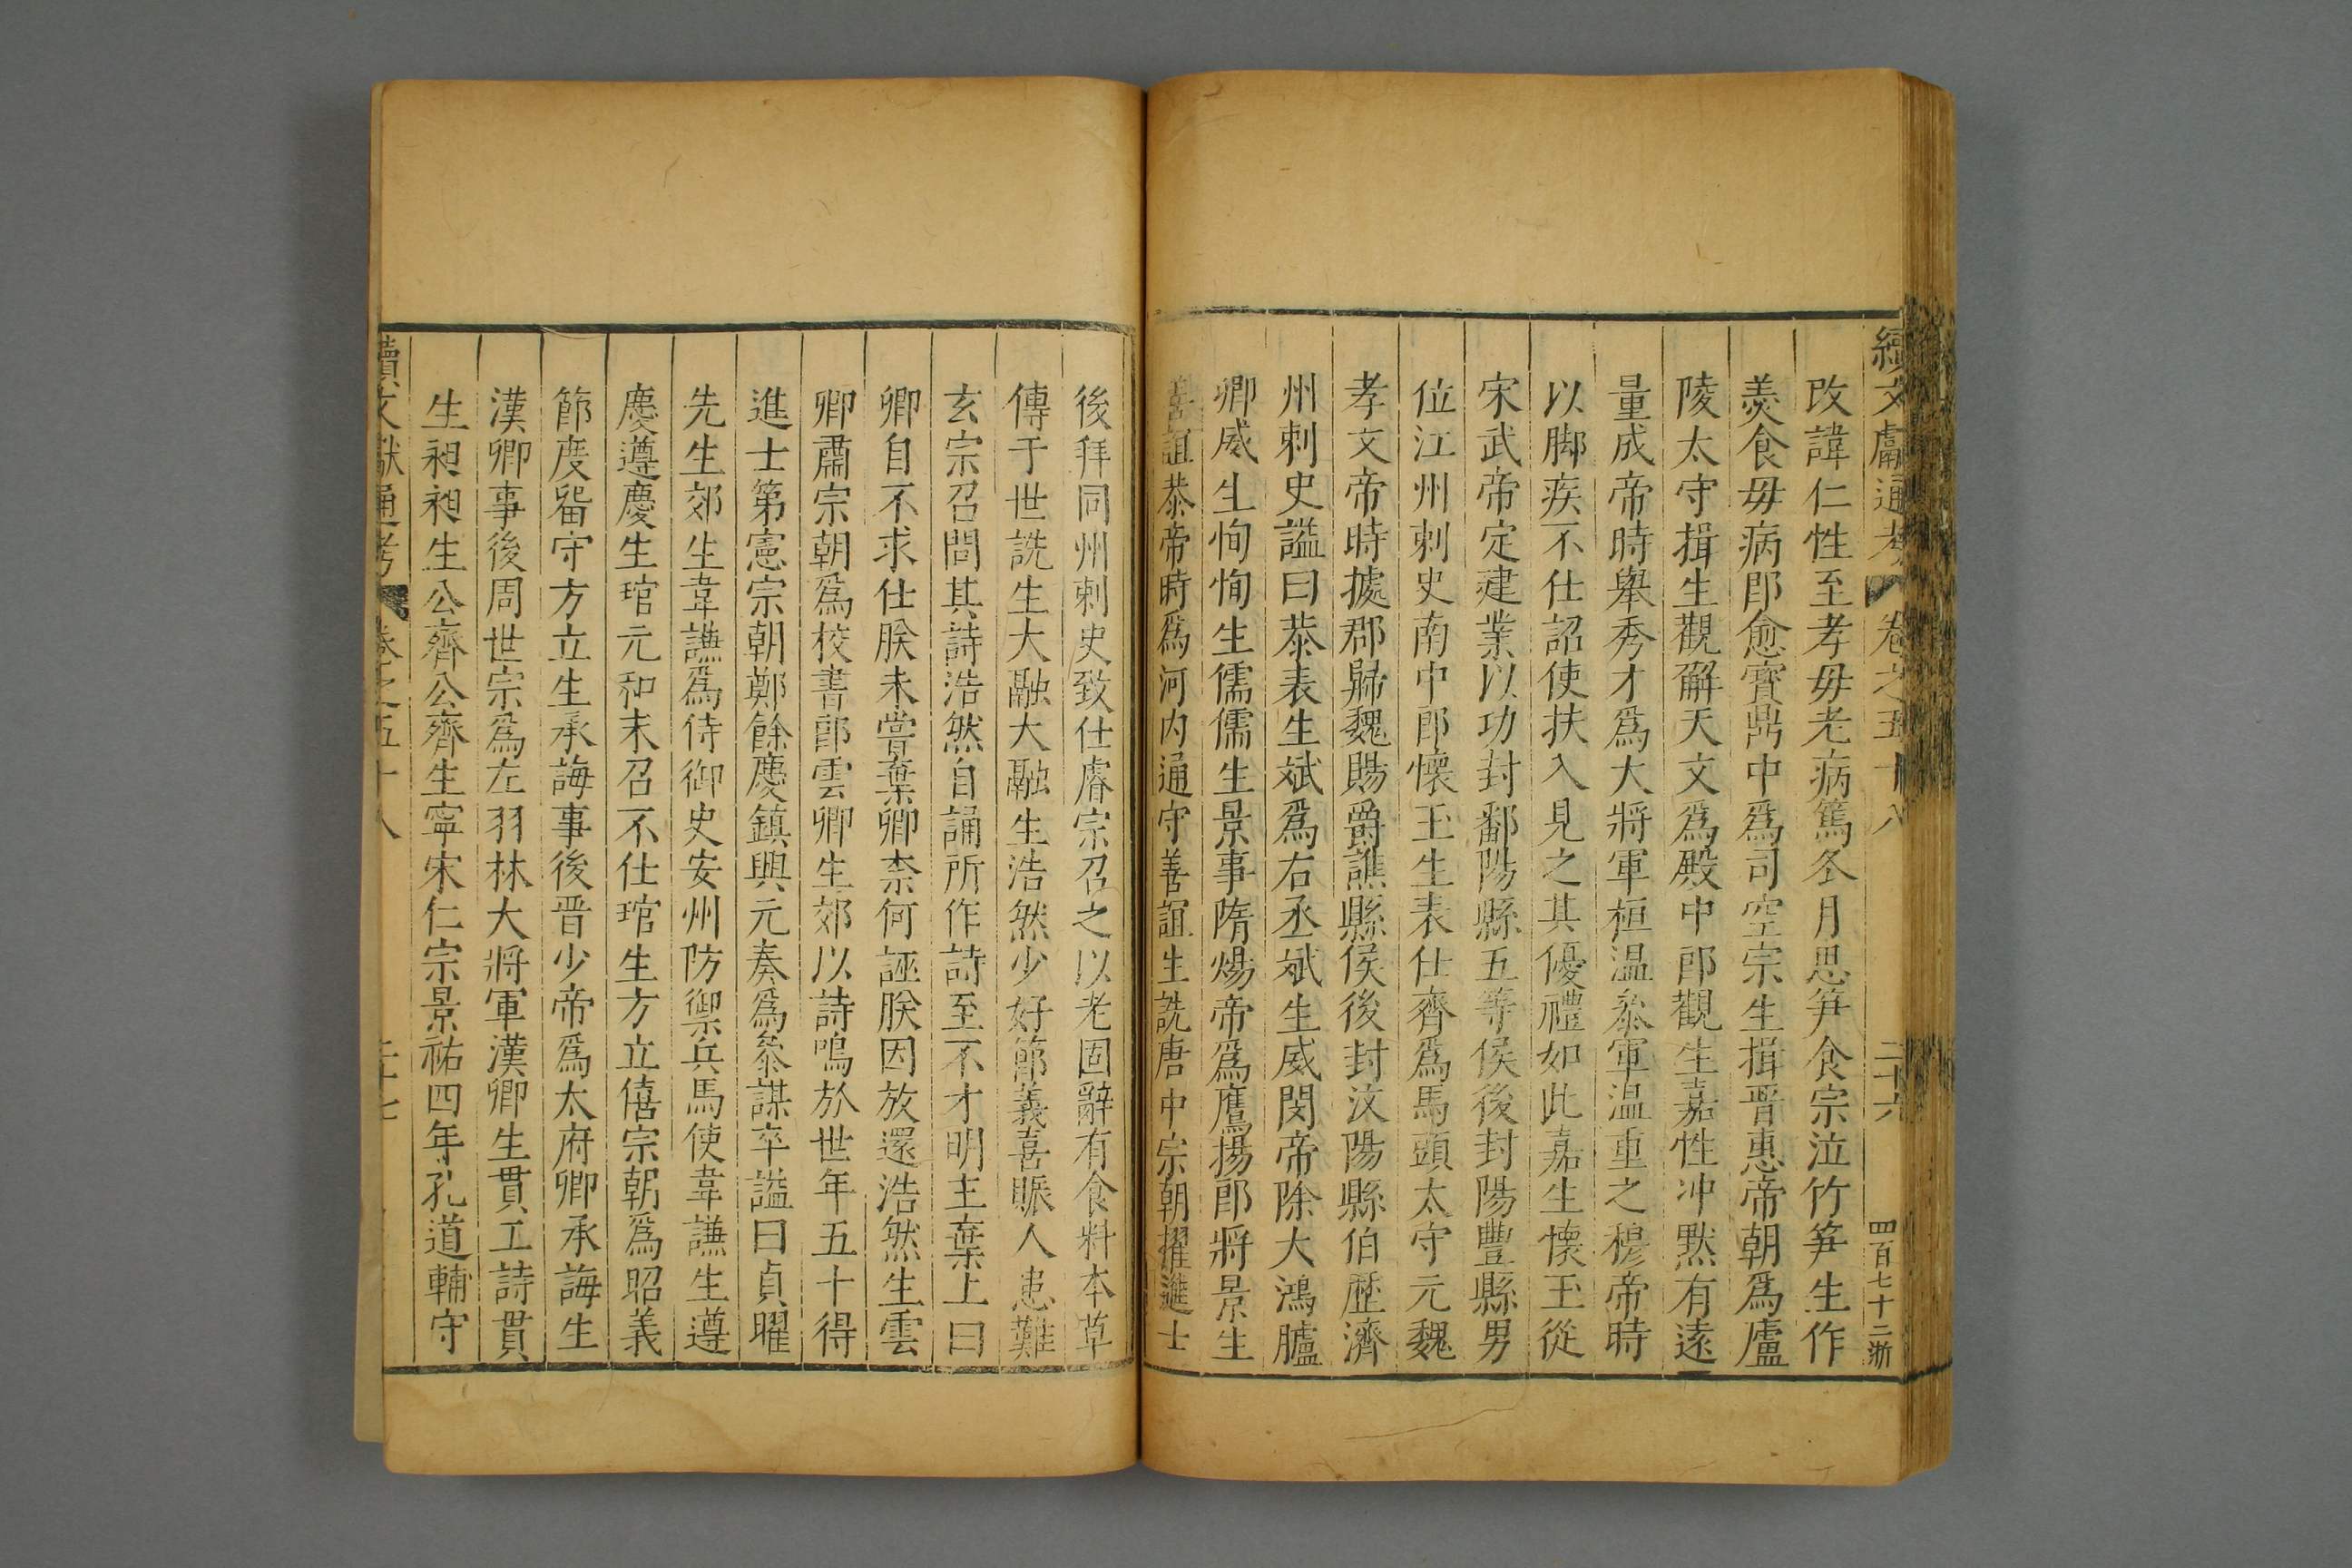 續文獻通考 卷之五十八 二十六 四百七十二浙
改諱仁性至孝毋老病篤冬月思笋食宗泣竹笋生作
羮食毋病即愈寳鼎中爲司空宗生揖晋惠帝朝爲廬
陵太守揖生觀觧天文爲殿中郎觀生嘉性冲黙有遠
量成帝時舉秀才爲大將軍桓温叅軍温重之穆帝時
以脚疾不仕詔使扶入見之其優禮如此嘉生懐玉從
宋武帝定建業以功封鄱陽縣五等侯後封陽豐縣男
位江州刺史南中郎懐玉生表仕齊爲馬頭太守元魏
孝文帝時㨿郡歸魏賜爵譙縣侯後封汶陽縣伯歴濟
州刺史謚曰恭表生斌爲右丞斌生威閔帝除大鴻臚
卿威生恂恂生儒儒生景事隋煬帝爲鷹揚郎將景生
善誼恭帝時爲河内通守善誼生詵唐中宗朝擢進士
後拜同州剌史致仕睿宗召之以老固辭有食料本草
傳于世詵生大融大融生浩然少好節義喜賑人患難
玄宗召問其詩浩然自誦所作詩至不才明主棄上曰
卿自不求仕朕未嘗棄卿柰何誣朕因放還浩然生雲
卿肅宗朝爲校書郎雲卿生郊以詩鳴於世年五十得
進士第憲宗朝鄭餘慶鎮興元奏爲叅謀卒謚曰貞曜
先生郊生韋謙爲侍御史安州防禦兵馬使韋謙生遵
慶遵慶生琯元和末召不仕琯生方立僖宗朝爲昭義
節度畱守方立生承誨事後晋少帝爲太府卿承誨生
漢卿事後周世宗爲左羽林大將軍漢卿生貫工詩貫
生昶昶生公齊公齊生寧宋仁宗景祐四年孔道輔守
續文獻通考 卷之五十八 二十七